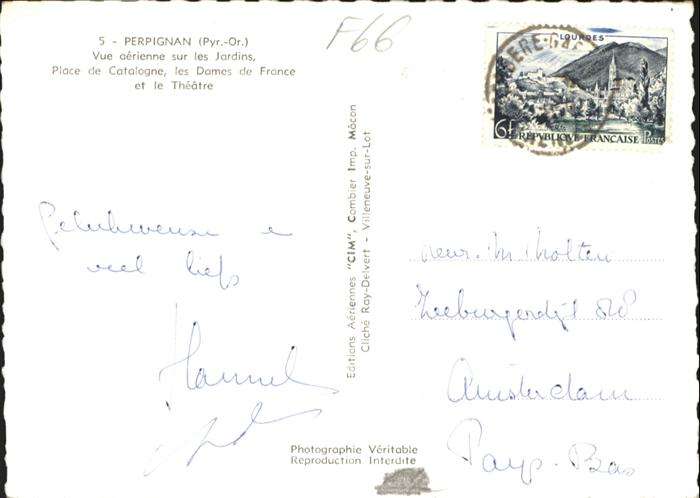 5 - PERPIGNAN (Pyr.-Or.)
Vue aérienne sur les Jardins,
Place de Catalogne, les Dames de France
et le Théâtre
F66
LOURDES
6F RÉPUBLIQUE FRANÇAISE POSTES
Editions Aériennes "CIM", Combier Imp. Mâcon
Cliché Ray-Delvert - Villeneuve-sur-Lot
veel liefs
M Molten
Zeeburgerdijk
Amsterdam
Pays-Bas
Photographie Véritable
Reproduction Interdite